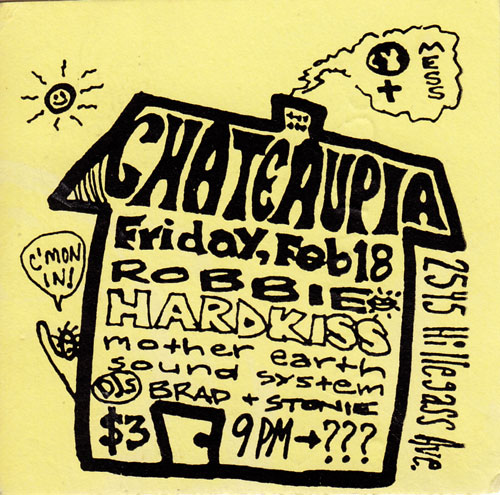 MESS
+
CHATEAUPIA
Friday, Feb 18
ROBBIE
HARDKISS
mother earth
sound system
DJS BRAD + STONIE
$3 9PM→???
C'MON
IN!
2545 Hillegass Ave.